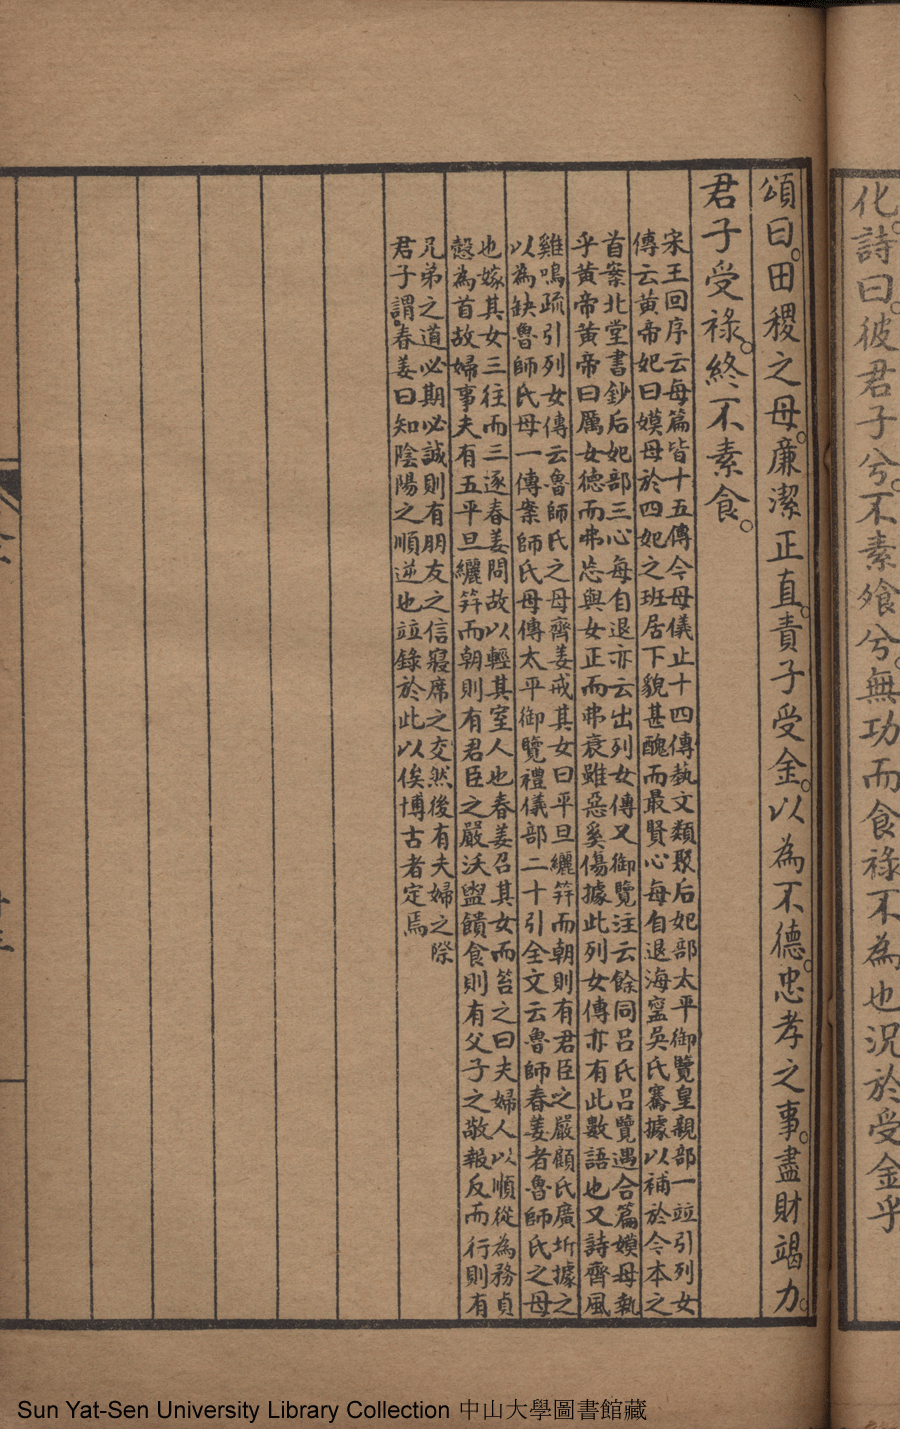 化詩曰彼君子兮不素飱兮無功而食祿不為也況於受金乎
頌曰田稷之母廉潔正直責子受金以為不德忠孝之事盡財竭力
君子受祿終不素食
宋王回序云每篇皆十五傳今母儀止十四傳執文類聚后妃部太平御覽皇親部一竝引列女
傳云黃帝妃曰嫫母於四妃之班居下貌甚醜而最賢心每自退海寧吳氏騫據以補於今本之
首案北堂書鈔后妃部三心每自退亦云出列女傳又御覽注云餘同呂氏呂覽遇合篇嫫母執
乎黃帝黃帝曰厲女德而弗忘與女正而弗衰雖惡奚傷據此列女傳亦有此數語也又詩齊風
雞鳴疏引列女傳云魯師氏之母齊姜戒其女曰平旦纚笄而朝則有君臣之嚴顧氏廣圻據之
以為缺魯師氏母一傳案師氏母傳太平御覽禮儀部二十引全文云魯師春姜者魯師氏之母
也嫁其女三往而三逐春姜問故以輕其室人也春姜召其女而笞之曰夫婦人以順從為務貞
愨為首故婦事夫有五平旦纚笄而朝則有君臣之嚴沃盥饋食則有父子之敬報反而行則有
兄弟之道必期必誠則有朋友之信寢席之交然後有夫婦之際
君子謂春姜曰知陰陽之順逆也竝錄於此以俟博古者定焉
Sun Yat-Sen University Library Collection 中山大學圖書館藏